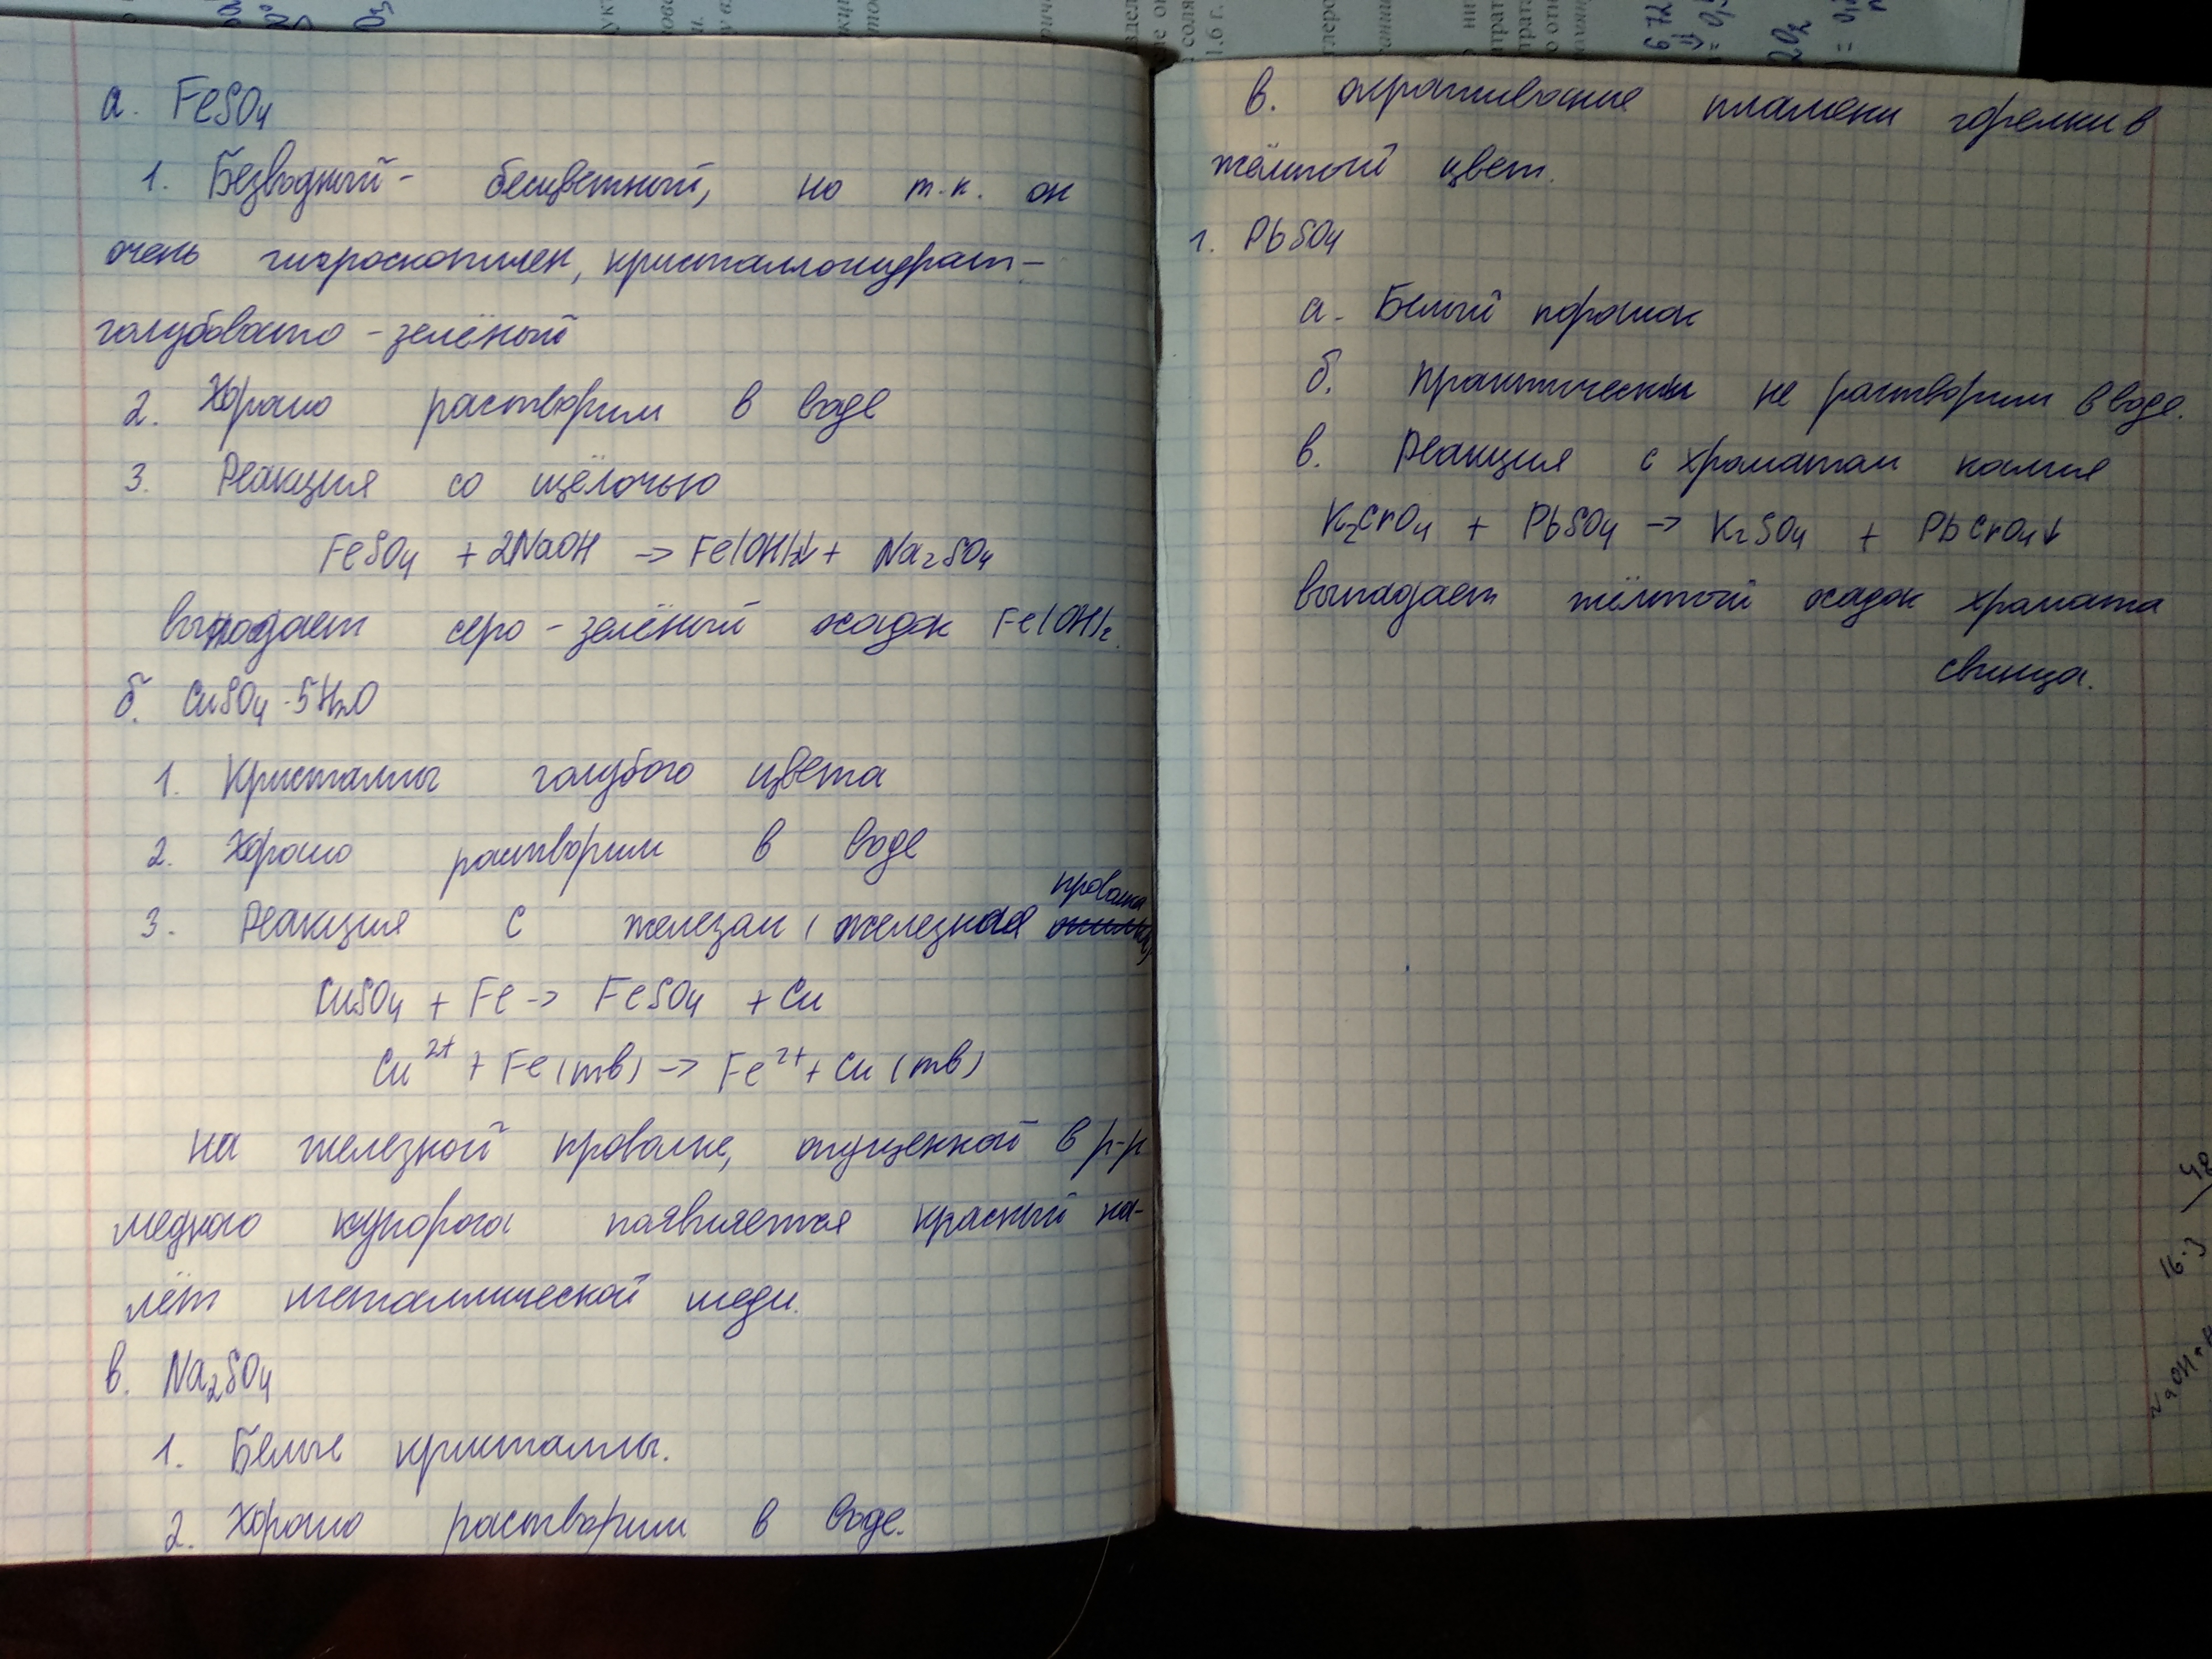 а. FeSO4
1. Безводный - бесцветный, но т.к. он
очень гигроскопичен, кристаллогидрат -
голубовато - зелёный
2. Хорошо растворим в воде
3. Реакция со щёлочью
FeSO4 + 2NaOH -> Fe(OH)2↓ + Na2SO4
выпадает серо - зелёный осадок Fe(OH)2.
б. CuSO4 · 5H2O
1. Кристаллы голубого цвета
2. Хорошо растворим в воде
3. Реакция с железом (железная проволка)
CuSO4 + Fe -> FeSO4 + Cu
Cu2+ + Fe (тв) -> Fe2+ + Cu (тв)
на железной проволке, опущенной в р-р
медного купороса появляется красный на-
лёт металлической меди.
в. Na2SO4
1. Белые кристаллы.
2. Хорошо растворим в воде.
в. окрашивание пламени горелки в
жёлтый цвет.
г. PbSO4
а. Белый порошок
б. практически не растворим в воде.
в. Реакция с хроматом калия
K2CrO4 + PbSO4 -> K2SO4 + PbCrO4↓
выпадает жёлтый осадок хромата
свинца.
16·3